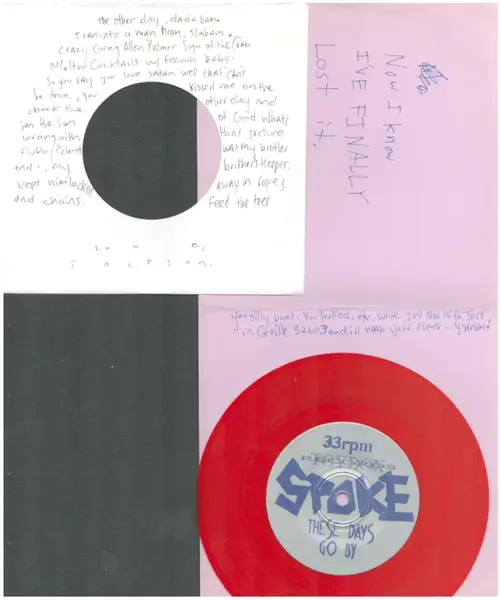 the other day, dad a bam
I ran into a man Bram, slabam.
Crazy Greg Allen Palmer Sign of the Crab
Molter Cocktails w/ feevin baby.
So you say you love satan well that can't
be true, you kissed me on the
check the other day and
im the son of God whats
wrong with this picture
was my brother
and , my brothers keeper,
kept him locked away in ropes
and chains. Feed the tree
Love,
Jackson.
NOW I know
I'VE FINALLY
Lost it.
you silly bunt. You fucked, write 304 NW 15th Terr
in G-ville 32603 and ill wax your
33rpm
SPOKE
THESE DAYS
GO BY